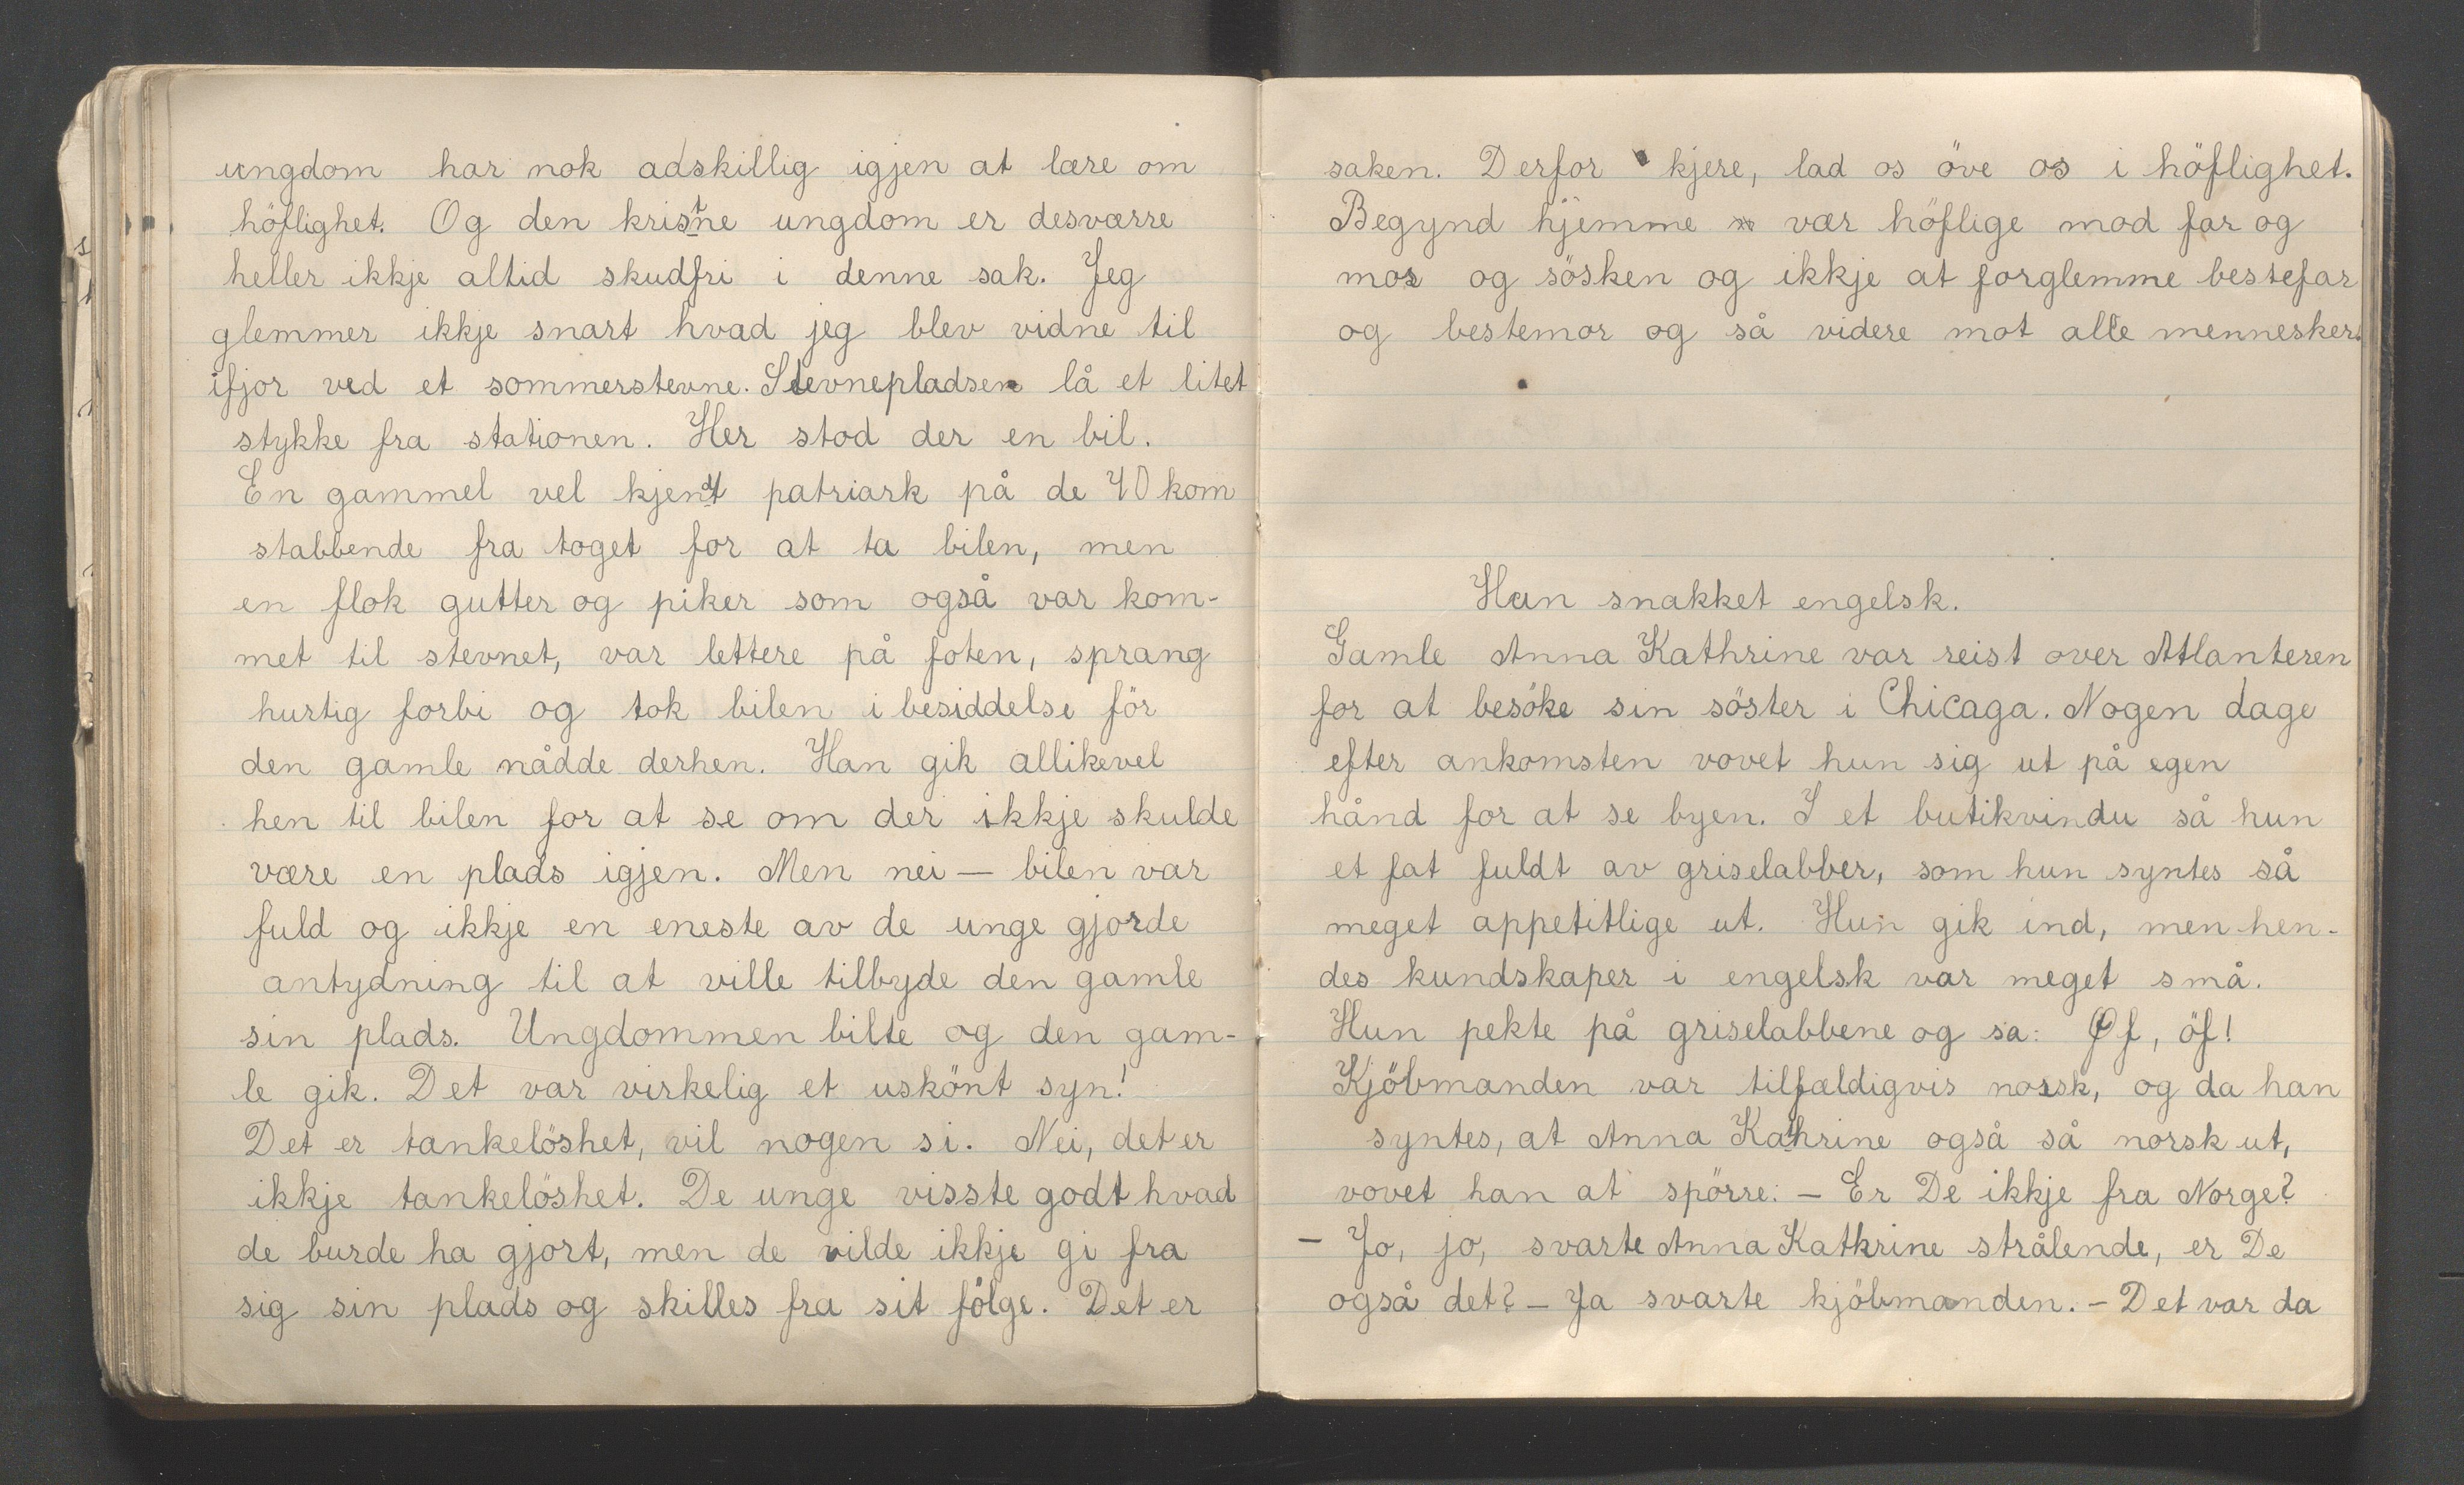 ungdom har nok adskillig igjen at lære om
höflighet. Og den kristne ungdom er desværre
heller ikkje altid skudfri i denne sak. Jeg
glemmer ikkje snart hvad jeg blev vidne til
ifjor ved et sommerstevne. Stevnepladsen lå et litet
stykke fra stationen. Her stod der en bil.
En gammel vel kjendt patriark på de 70 kom
stabbende fra toget for at ta bilen, men
en flok gutter og piker som også var kom-
met til stevnet, var lettere på foten, sprang
hurtig forbi og tok bilen i besiddelse för
den gamle nådde derhen. Han gik allikevel
hen til bilen for at se om der ikkje skulde
være en plads igjen. Men nei — bilen var
fuld og ikkje en eneste av de unge gjorde
antydning til at ville tilbyde den gamle
sin plads. Ungdommen bilte og den gam-
le gik. Det var virkelig et uskönt syn!
Det er tankelöshet, vil nogen si. Nei, det er
ikkje tankelöshet. De unge visste godt hvad
de burde ha gjort, men de vilde ikkje gi fra
sig sin plads og skilles fra sit fölge. Det er
saken. Derfor kjere, lad os öve os i höflighet.
Begynd hjemme vær höflige mod far og
mor og sösken og ikkje at forglemme bestefar
og bestemor og så videre mot alle mennesker.
Hun snakket engelsk.
Gamle Anna Kathrine var reist over Atlanteren
for at besöke sin söster i Chicaga. Nogen dage
efter ankomsten vovet hun sig ut på egen
hånd for at se byen. I et butikvindu så hun
et fat fuldt av griselabber, som hun syntes så
meget appetitlige ut. Hun gik ind, men hen-
des kundskaper i engelsk var meget små.
Hun pekte på griselabbene og sa: Øf, öf!
Kjöbmanden var tilfældigvis norsk, og da han
syntes, at Anna Kathrine også så norsk ut,
vovet han at spörre: – Er De ikkje fra Norge?
– Jo, jo, svarte Anna Kathrine strålende, er De
også det? – Ja svarte kjöbmanden. – Det var da